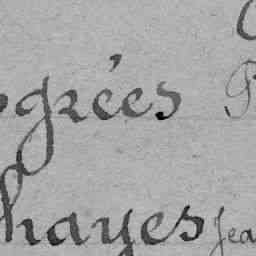 ogrées
hayes Jea